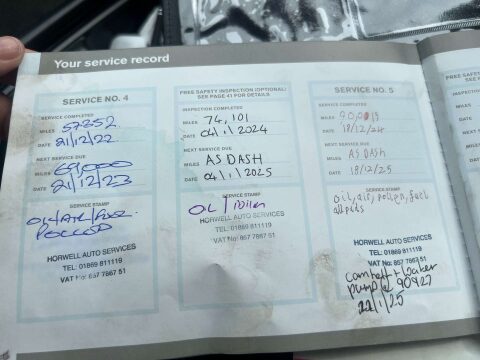 Your service record
SERVICE NO. 4
SERVICE COMPLETED
MILES 57252
DATE 21/12/22
NEXT SERVICE DUE
MILES 69,000
DATE 21/12/23
SERVICE STAMP
HORWELL AUTO SERVICES
TEL: 01869 811119
VAT No: 857 7867 51
FREE SAFETY INSPECTION (OPTIONAL)
SEE PAGE 41 FOR DETAILS
INSPECTION COMPLETED
MILES 74,101
DATE 04/1/2024
NEXT SERVICE DUE
MILES AS DASH
DATE 04/1/2025
SERVICE STAMP
OIL/
HORWELL AUTO SERVICES
TEL: 01869 811119
VAT No: 857 7867 51
SERVICE NO. 5
SERVICE COMPLETED
MILES
DATE 18/12/24
NEXT SERVICE DUE
MILES AS DASH
DATE 18/12/25
SERVICE STAMP
oil, air, pollen, fuel
HORWELL AUTO SERVICES
TEL: 01869 811119
VAT No: 857 7867 51
cambelt + water
pump @ 90427
22/1/25